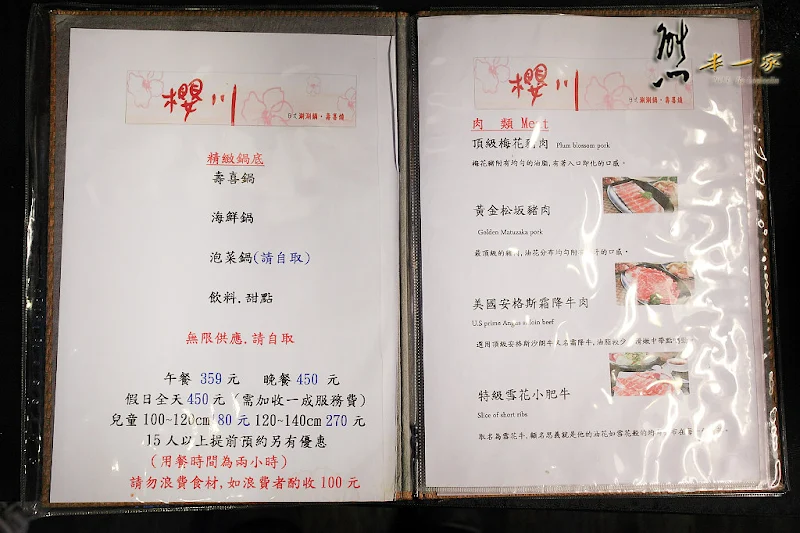 櫻川
日式涮涮鍋・壽喜燒
精緻鍋底
壽喜鍋
海鮮鍋
泡菜鍋(請自取)
飲料.甜點
無限供應,請自取
午餐 359 元 晚餐 450 元
假日全天450元 需加收一成服務費)
兒童100~120cm 80元 120~140cm 270元
15人以上提前預約另有優惠
(用餐時間為兩小時)
請勿浪費食材,如浪費者酌收100元
櫻川
日式涮涮鍋・壽喜燒
肉 類 Meat
頂級梅花豬肉 Plum blossom pork
梅花豬附有均勻的油脂,有著入口即化的口感。
黃金松坂豬肉
Golden Matuzaka pork
最頂級的豬肉,油花分布均勻附有 的口感。
美國安格斯霜降牛肉
U.S prime Angus sirloin beef
選用頂級安格斯沙朗牛又名霜降牛,油脂較少
特級雪花小肥牛
Slice of short ribs
取名為雪花牛,顧名思義就是他的油花如雪花般的
熊 一家